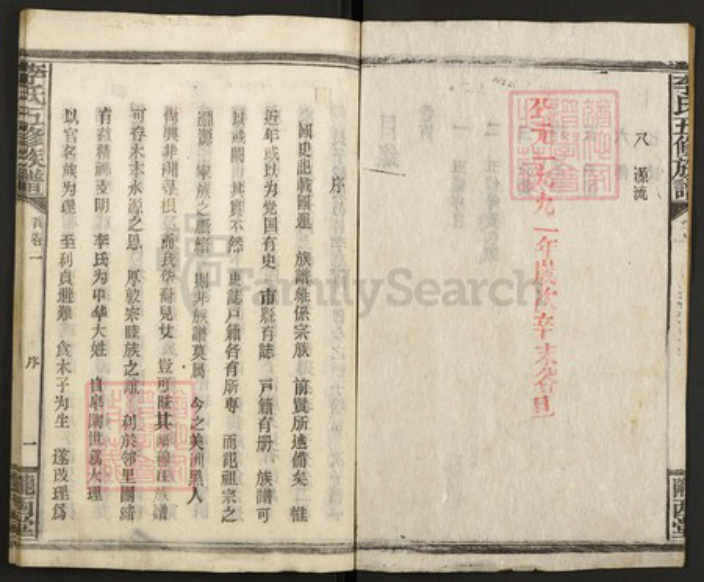 李氏五修族譜
隴西堂
八 源流
公元一九九一年歲次辛未谷旦
序
國史記載國運 族譜維係宗族 前賢所述備矣 惟
近年或以为党国有史 市縣有誌 戸籍有册 族譜可
以或闕 其實不然 史誌戸籍各有所專 而記祖宗之
淵源 家族之 則非族譜莫屬 今之美洲黑人
尚興非洲尋根 而我华裔兒女 豈可昧其 族譜
可存木本水源之思 厚敦宗睦族之誼 利於邻里團結
有益精神文明 李氏为中华大姓 自皋陶世爲大理
以官名族为理 至利貞避難 食木子为生 遂改理爲
李氏五修族譜
首卷一
序
一
隴西堂
FamilySearch